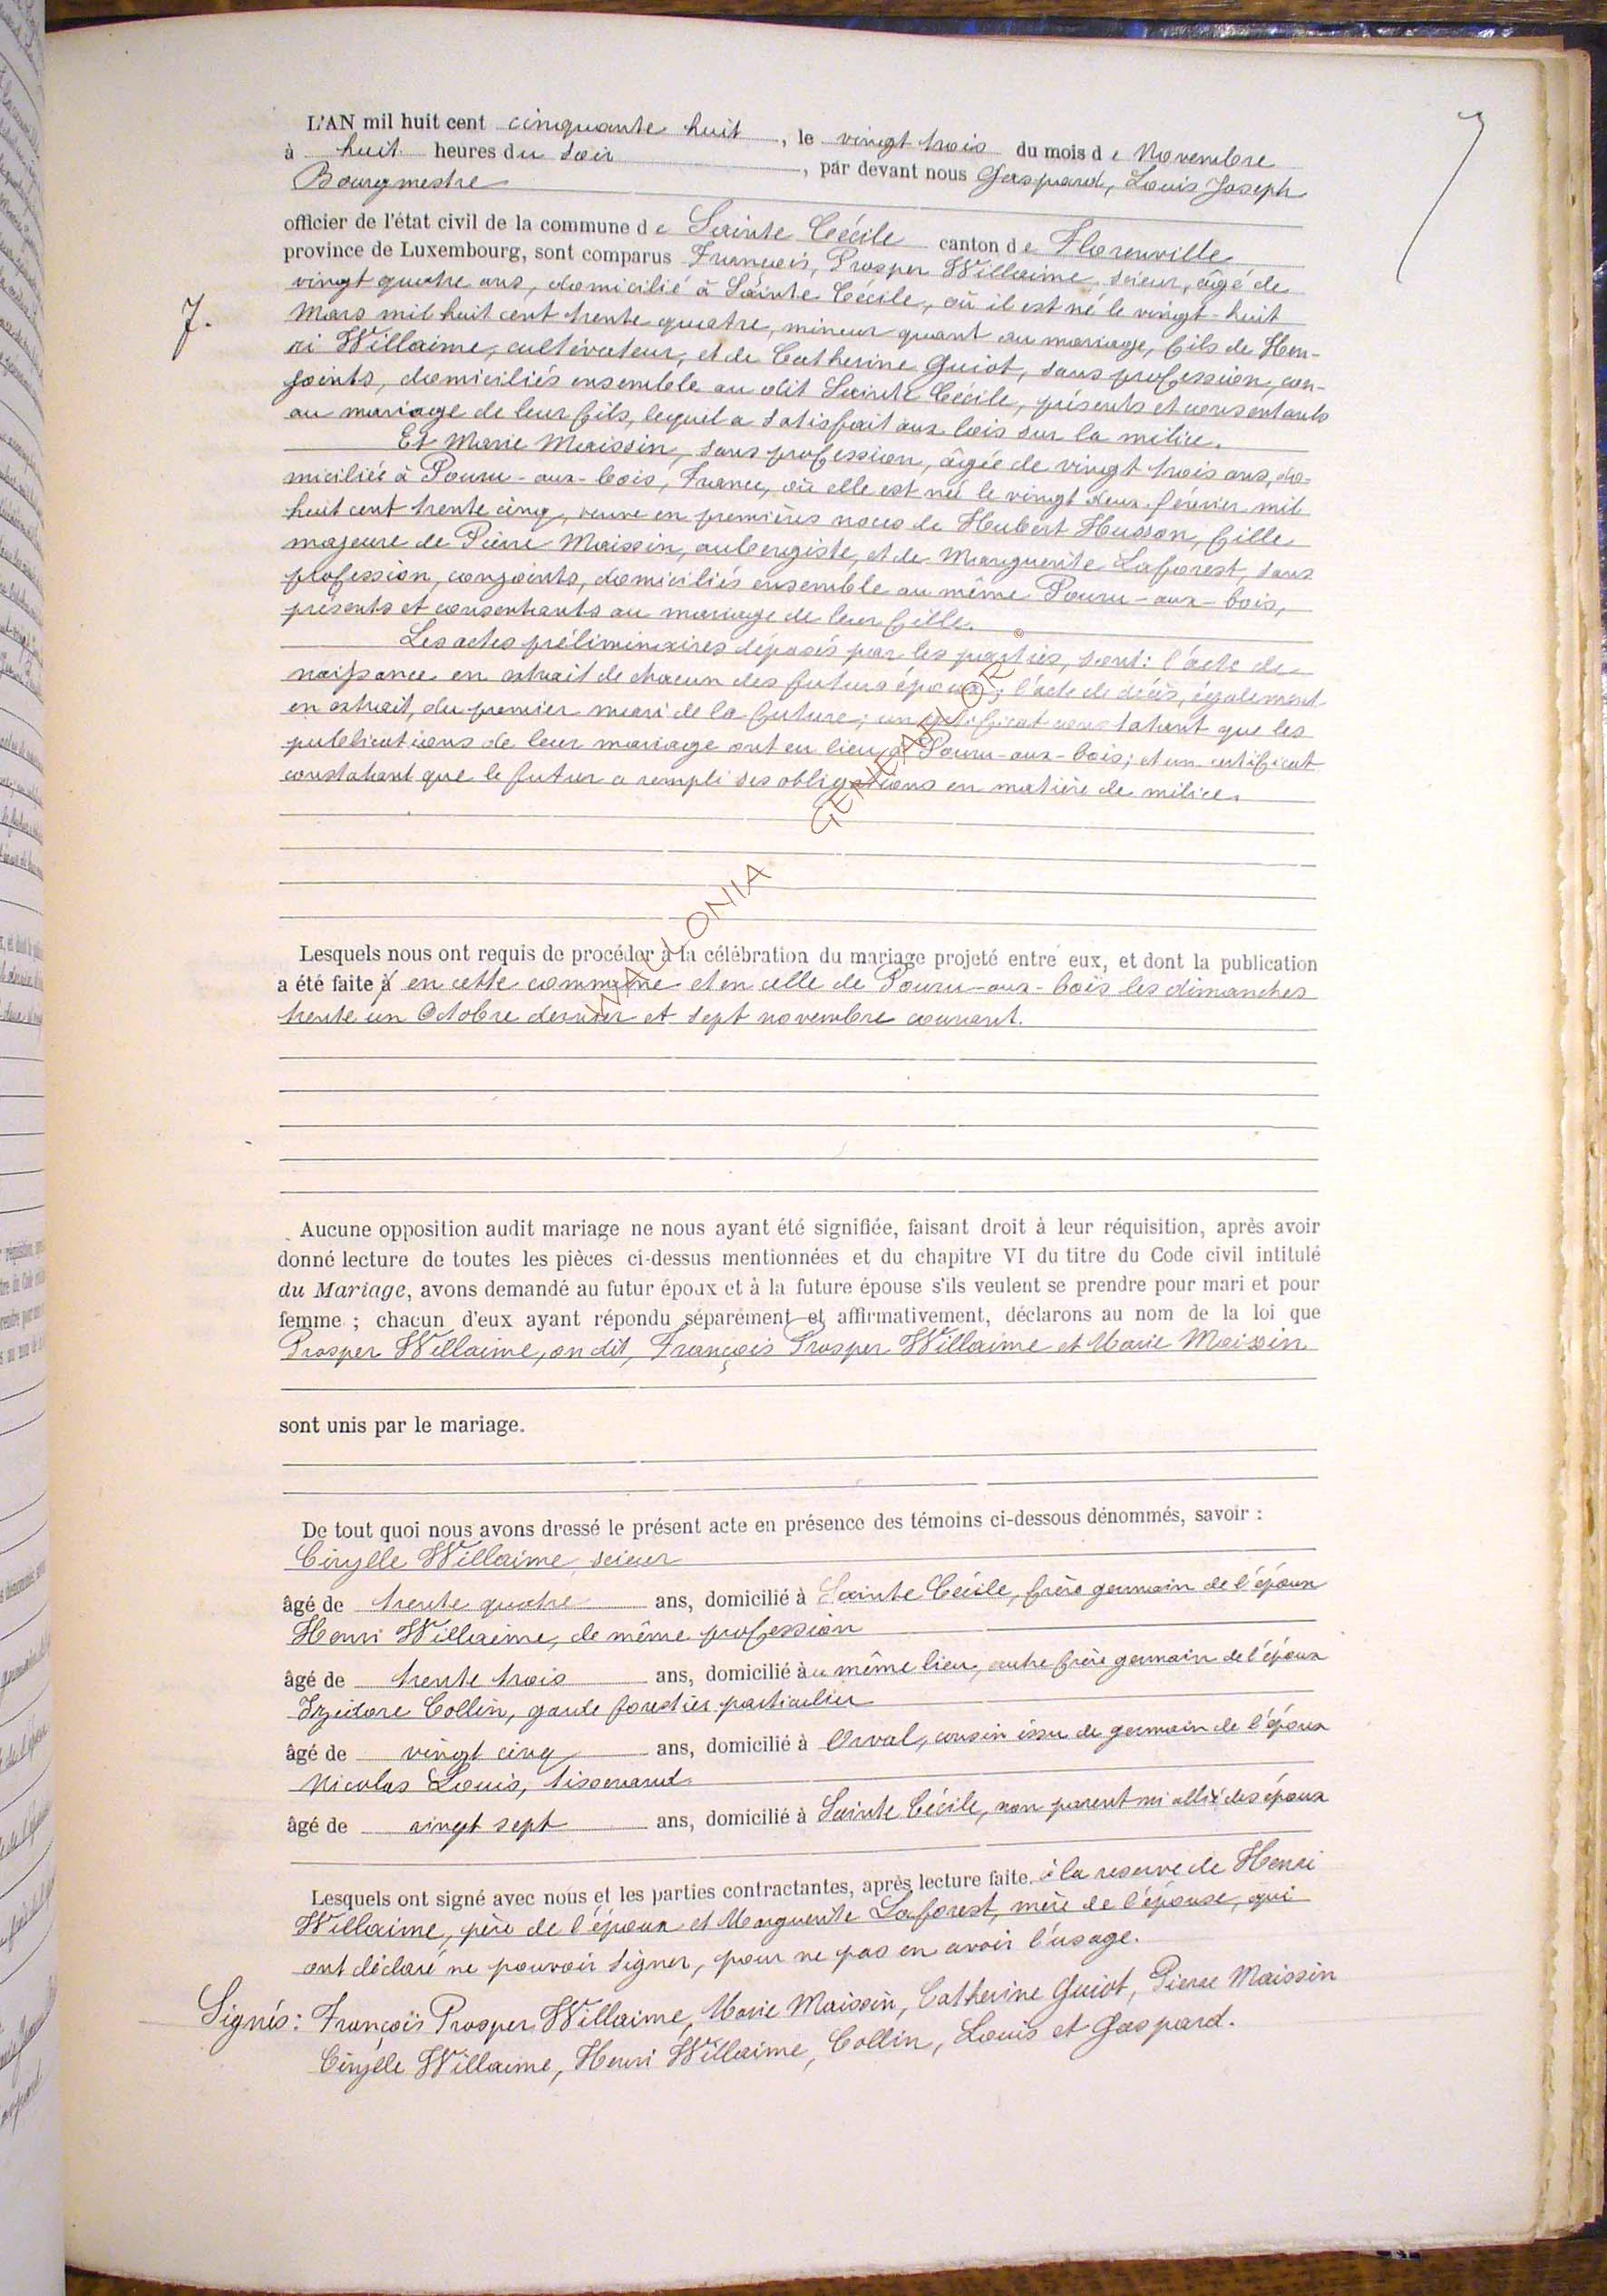 7
L'AN mil huit cent cinquante huit, le vingt trois du mois de Novembre
à huit heures du soir, par devant nous Gaspard, Louis Joseph
Bourgmestre
officier de l'état civil de la commune de Sainte Cécile canton de Florenville
province de Luxembourg, sont comparus François, Prosper Willaime, scieur, âgé de
vingt quatre ans, domicilié à Sainte Cécile, où il est né le vingt-huit
7. Mars mil huit cent trente quatre, mineur quant au mariage, fils de Hen-
ri Willaime, cultivateur, et de Catherine Guiot, sans profession, con-
joints, domiciliés ensemble au dit Sainte Cécile, présents et consentants
au mariage de leur fils, lequel a satisfait aux lois sur la milice.
Et Marie Maissin, sans profession, âgée de vingt trois ans, do-
miciliée à Pouru-aux-bois, France, où elle est née le vingt deux février mil
huit cent trente cinq, veuve en premières noces de Hubert Husson, fille
majeure de Pierre Maissin, aubergiste, et de Marguerite Laforest, sans
profession, conjoints, domiciliés ensemble au même Pouru-aux-bois,
présents et consentants au mariage de leur fille.
Les actes préliminaires déposés par les parties, sont: l'acte de
naissance en extrait de chacun des futurs époux; l'acte de décès, également
en extrait, du premier mari de la future; un certificat constatant que les
publications de leur mariage ont eu lieu à Pouru-aux-bois; et un certificat
constatant que le futur a rempli ses obligations en matière de milice.
WALLONIA GENEAFLOR ©
Lesquels nous ont requis de procéder à la célébration du mariage projeté entre eux, et dont la publication
a été faite à en cette commune et en celle de Pouru-aux-bois les dimanches
trente un Octobre dernier et sept novembre courant.
Aucune opposition audit mariage ne nous ayant été signifiée, faisant droit à leur réquisition, après avoir
donné lecture de toutes les pièces ci-dessus mentionnées et du chapitre VI du titre du Code civil intitulé
du Mariage, avons demandé au futur époux et à la future épouse s'ils veulent se prendre pour mari et pour
femme ; chacun d'eux ayant répondu séparément et affirmativement, déclarons au nom de la loi que
Prosper Willaime, on dit, François Prosper Willaime et Marie Maissin
sont unis par le mariage.
De tout quoi nous avons dressé le présent acte en présence des témoins ci-dessous dénommés, savoir :
Cirylle Willaime, scieur
âgé de trente quatre ans, domicilié à Sainte Cécile, frère germain de l'époux
Henri Willaime, de même profession
âgé de trente trois ans, domicilié au même lieu, autre frère germain de l'époux
Izidore Collin, garde forestier particulier
âgé de vingt cinq ans, domicilié à Orval, cousin issu de germain de l'époux
Nicolas Louis, tisserand
âgé de vingt sept ans, domicilié à Sainte Cécile, non parent ni allié des époux
Lesquels ont signé avec nous et les parties contractantes, après lecture faite, à la reserve de Henri
Willaime, père de l'époux et Marguerite Laforest, mère de l'épouse, qui
ont déclaré ne pouvoir signer, pour ne pas en avoir l'usage.
Signés: François Prosper Willaime, Marie Maissin, Catherine Guiot, Pierre Maissin
Cirylle Willaime, Henri Willaime, Collin, Louis et Gaspard.